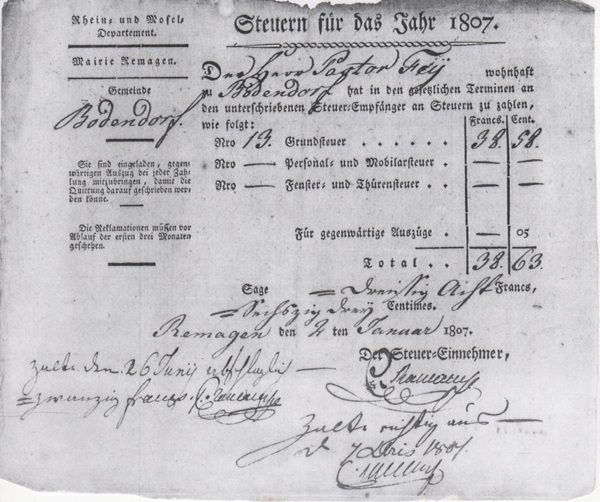 Rhein- und Mosel-
Departement.
Mairie Remagen.
Gemeinde
Bodendorf.
Sie sind eingeladen, gegen-
wärtigen Auszug bei jeder Zah-
lung mitzubringen, damit die
Quittung darauf geschrieben wer-
den könne.
Die Reklamationen müssen vor
Ablauf der ersten drei Monaten
geschehen.
Steuern für das Jahr 1807.
Der Herr Pastor Feÿ wohnhaft
zu Bodendorf hat in den gesetzlichen Terminen an
den unterschriebenen Steuer-Empfänger an Steuern zu zahlen,
wie folgt:
Francs. Cent.
Nro 13. Grundsteuer . . . . . . 38. 58.
Nro — Personal- und Mobilarsteuer . — —
Nro — Fenster- und Thürensteuer . . — —
Für gegenwärtige Auszüge . — 05
Total . . 38. 63.
Sage = Dreissig Acht Francs,
= Sechszig Dreÿ Centimes.
Remagen den 2 ten Januar 1807.
Der Steuer-Einnehmer,
Zalte den 26 Junij abschlaglich —
= zwanzig francs.
Zalte richtig aus —
d 7 Xbris 1807